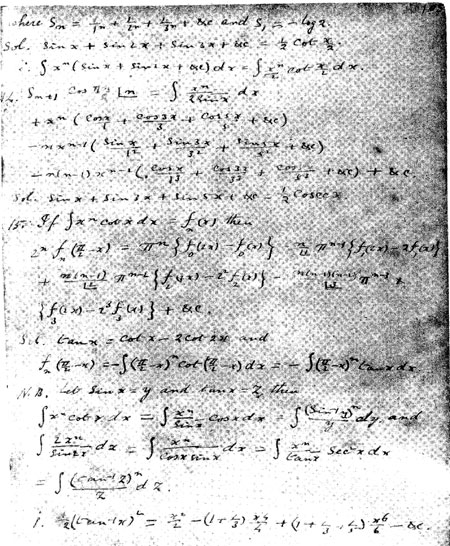 where Sn = 1/1^n + 1/2^n + 1/3^n + &c and S1 = - log 2
Sol. Sin x + Sin 2x + Sin 3x + &c = 1/2 Cot x/2.
∴ ∫ x^n (Sin x + Sin 2x + &c) dx = ∫ x^n/2 Cot x/2 dx.
14. S n+1 Cos π/2 n |n = ∫ x^n/(2 Sin x) dx
+ x^n (Cos x/1 + Cos 3x/3 + Cos 5x/5 + &c)
- n x^(n-1) (Sin x/1^2 + Sin 3x/3^2 + Sin 5x/5^2 + &c)
- n(n-1) x^(n-2) (Cos x/1^3 + Cos 3x/3^3 + Cos 5x/5^3 + &c) + &c
Sol. Sin x + Sin 3x + Sin 5x + &c = 1/2 Cosec x
15. If ∫ x^n cot x dx = f_n(x) then
2^n f_n(π/2 - x) = π^n {f_0(2x) - f_0(x)} - n/|1 π^(n-1) {f_1(2x) - 2f_1(x)}
+ n(n-1)/|2 π^(n-2) {f_2(2x) - 2^2 f_2(x)} - n(n-1)(n-2)/|3 π^(n-3) ×
{f_3(2x) - 2^3 f_3(x)} + &c.
Sol. tan x = cot x - 2 cot 2x and
f_n(π/2 - x) = - ∫ (π/2 - x)^n Cot (π/2 - x) dx = - ∫ (π/2 - x)^n tan x dx
N.B. Let Sin x = y and tan x = z, then
∫ x^n cot x dx = ∫ x^n/Sin x Cos x dx = ∫ (Sin^-1 y)^n/y dy, and
∫ 2x^n/Sin 2x dx = ∫ x^n/(Cos x Sin x) dx = ∫ x^n/tan x Sec^2 x dx
= ∫ (tan^-1 z)^n/z dz.
i. 1/2 (tan^-1 x)^2 = x^2/2 - (1 + 1/3) x^4/4 + (1 + 1/3 + 1/5) x^6/6 - &c.